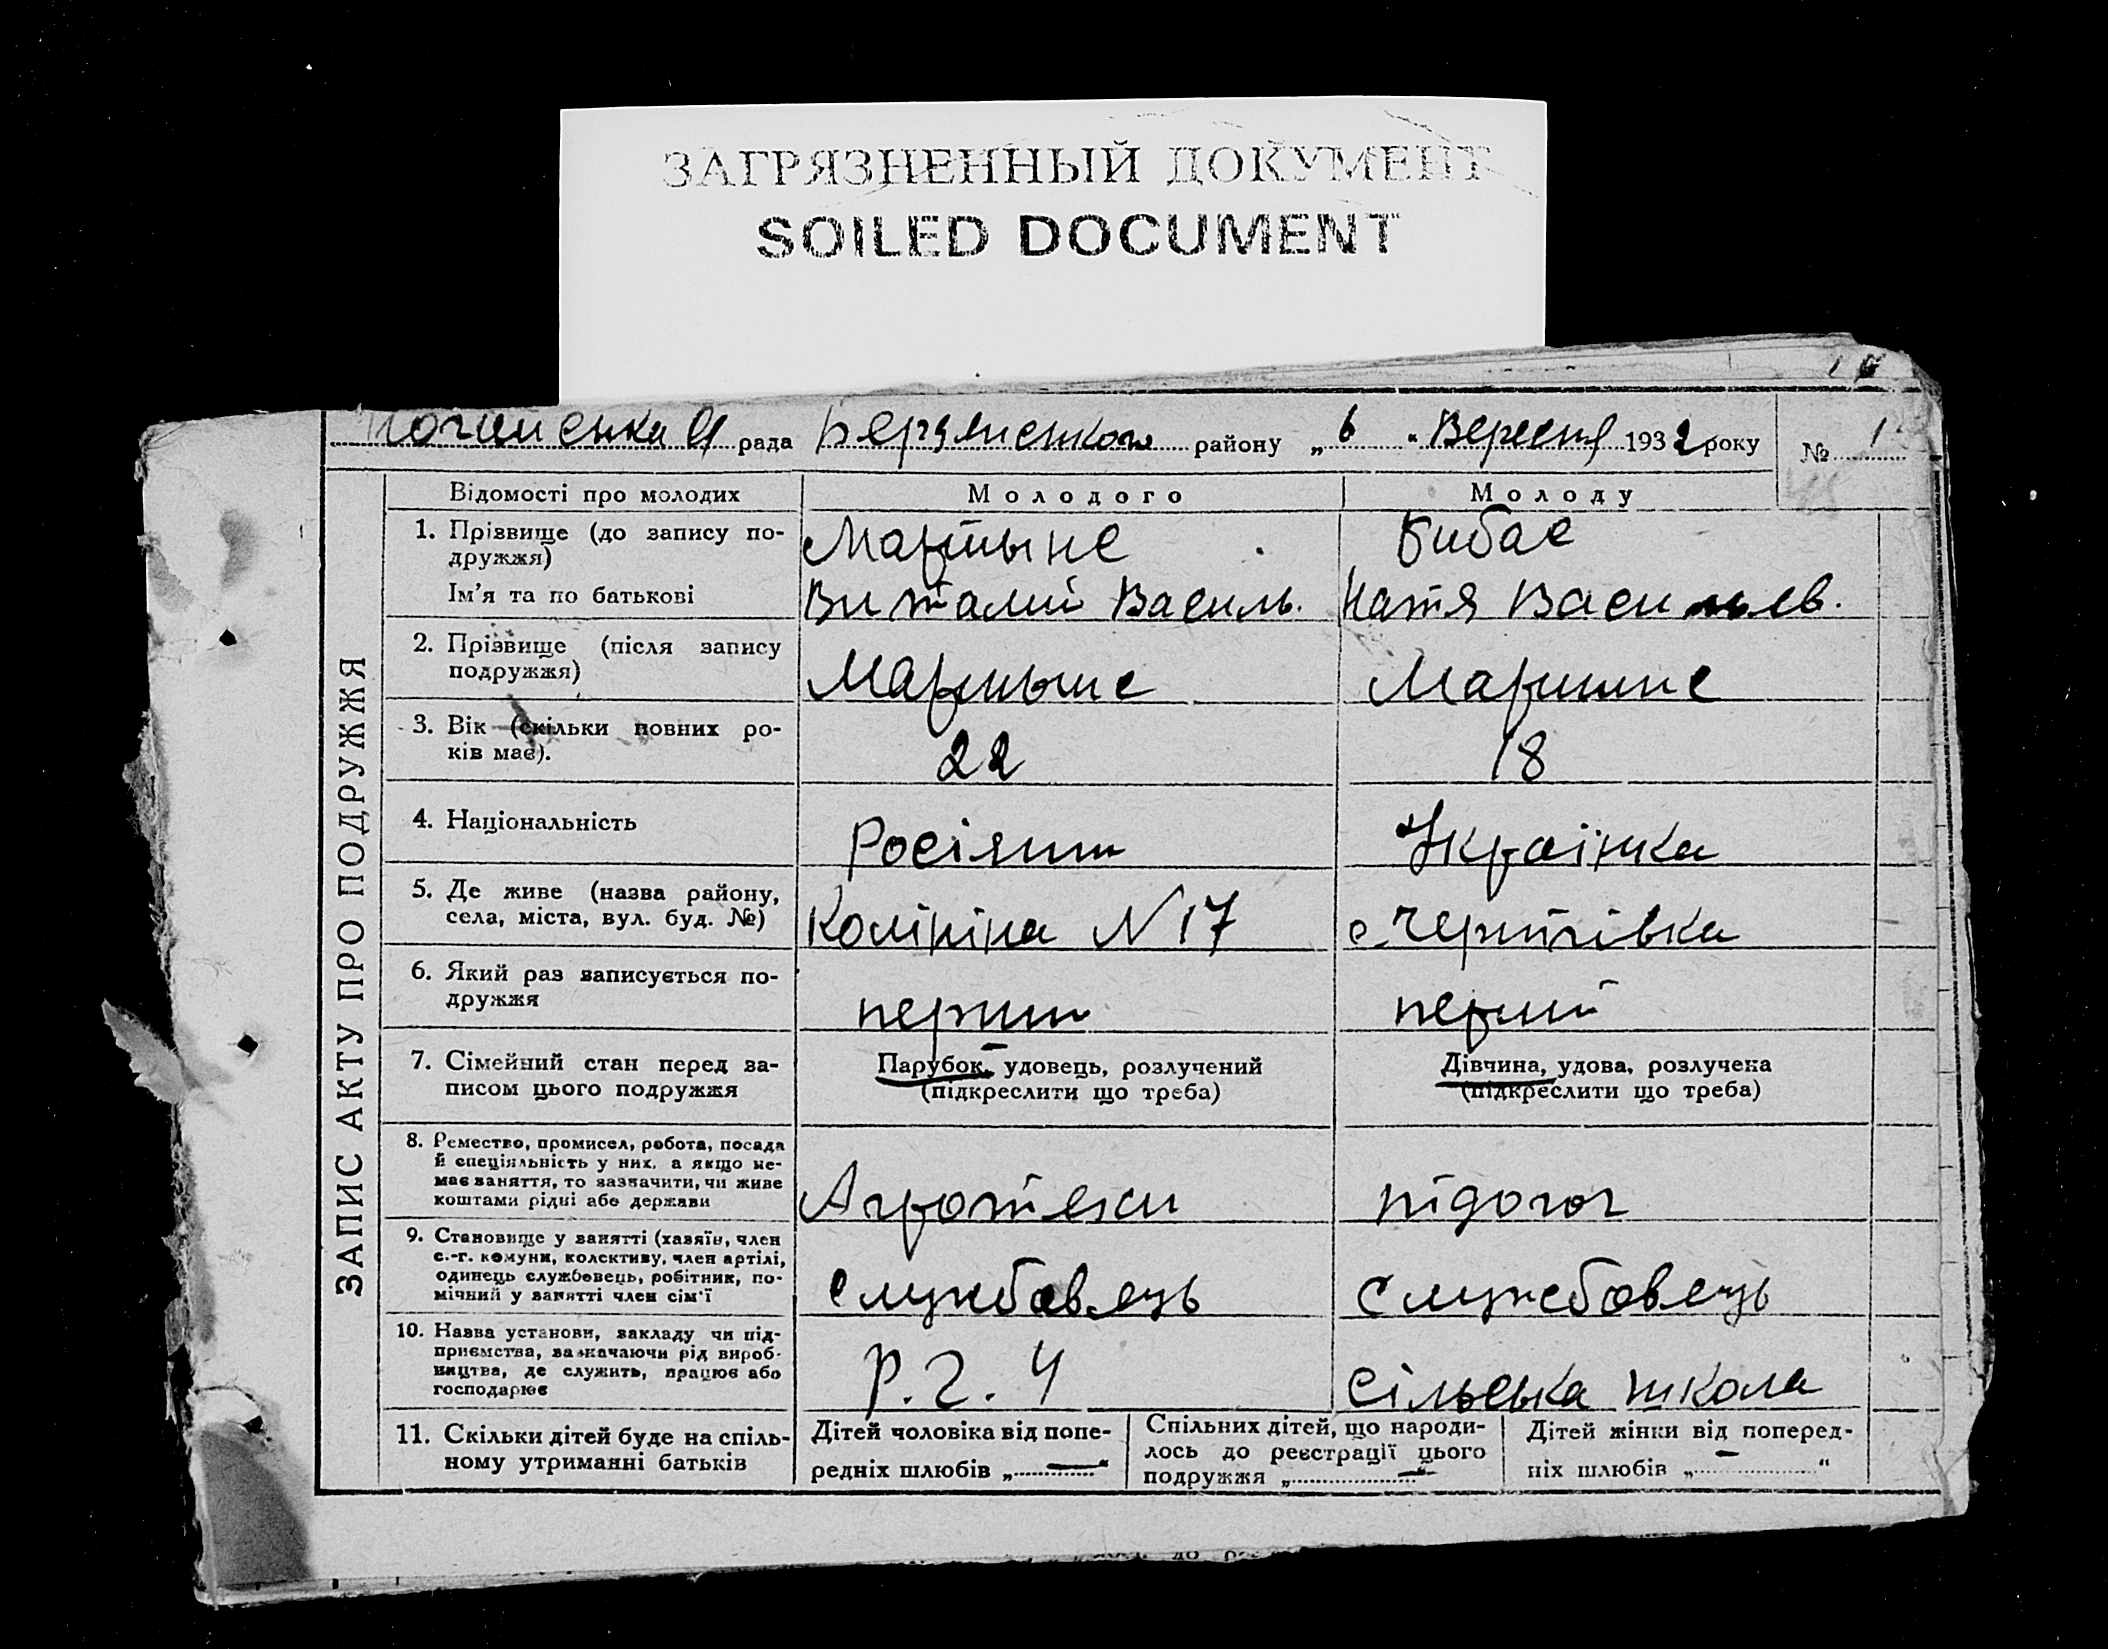 ЗАГРЯЗНЕННЫЙ ДОКУМЕНТ
SOILED DOCUMENT
рада Бердянського району „6“ Вересня 1932 року № 1
ЗАПИС АКТУ ПРО ПОДРУЖЖЯ
Відомості про молодих Молодого Молоду
1. Прізвище (до запису по-
дружжя) Мартыне Бибає
Ім'я та по батькові Виталий Василь. Катя Васильєв.
2. Прізвище (після запису
подружжя) Мартыне Мартине
3. Вік (скільки повних ро-
ків має). 22 18
4. Національність Росіянин Українка
5. Де живе (назва району,
села, міста, вул. буд. №) Калініна N 17 с.
6. Який раз записується по-
дружжя перший перший
7. Сімейний стан перед за-
писом цього подружжя
Парубок, удовець, розлучений
(підкреслити що треба)
Дівчина, удова, розлучена
(підкреслити що треба)
8. Ремество, промисел, робота, посада
й спеціяльність у них, а якщо не-
має заняття, то зазначити, чи живе
коштами рідні або держави
педогог
9. Становище у занятті (хазяїн, член
с.-г. комуни, колективу, член артілі,
одинець службовець, робітник, по-
мічний у занятті член сім'ї
службовець службовець
10. Назва установи, закладу чи під-
приємства, зазначаючи рід вироб-
ництва, де служить, працює або
господарює
сільська школа
11. Скільки дітей буде на спіль-
ному утриманні батьків
Дітей чоловіка від попе-
редніх шлюбів „—“
Спільних дітей, що народи-
лось до реєстрації цього
подружжя „—“
Дітей жінки від поперед-
ніх шлюбів „—“